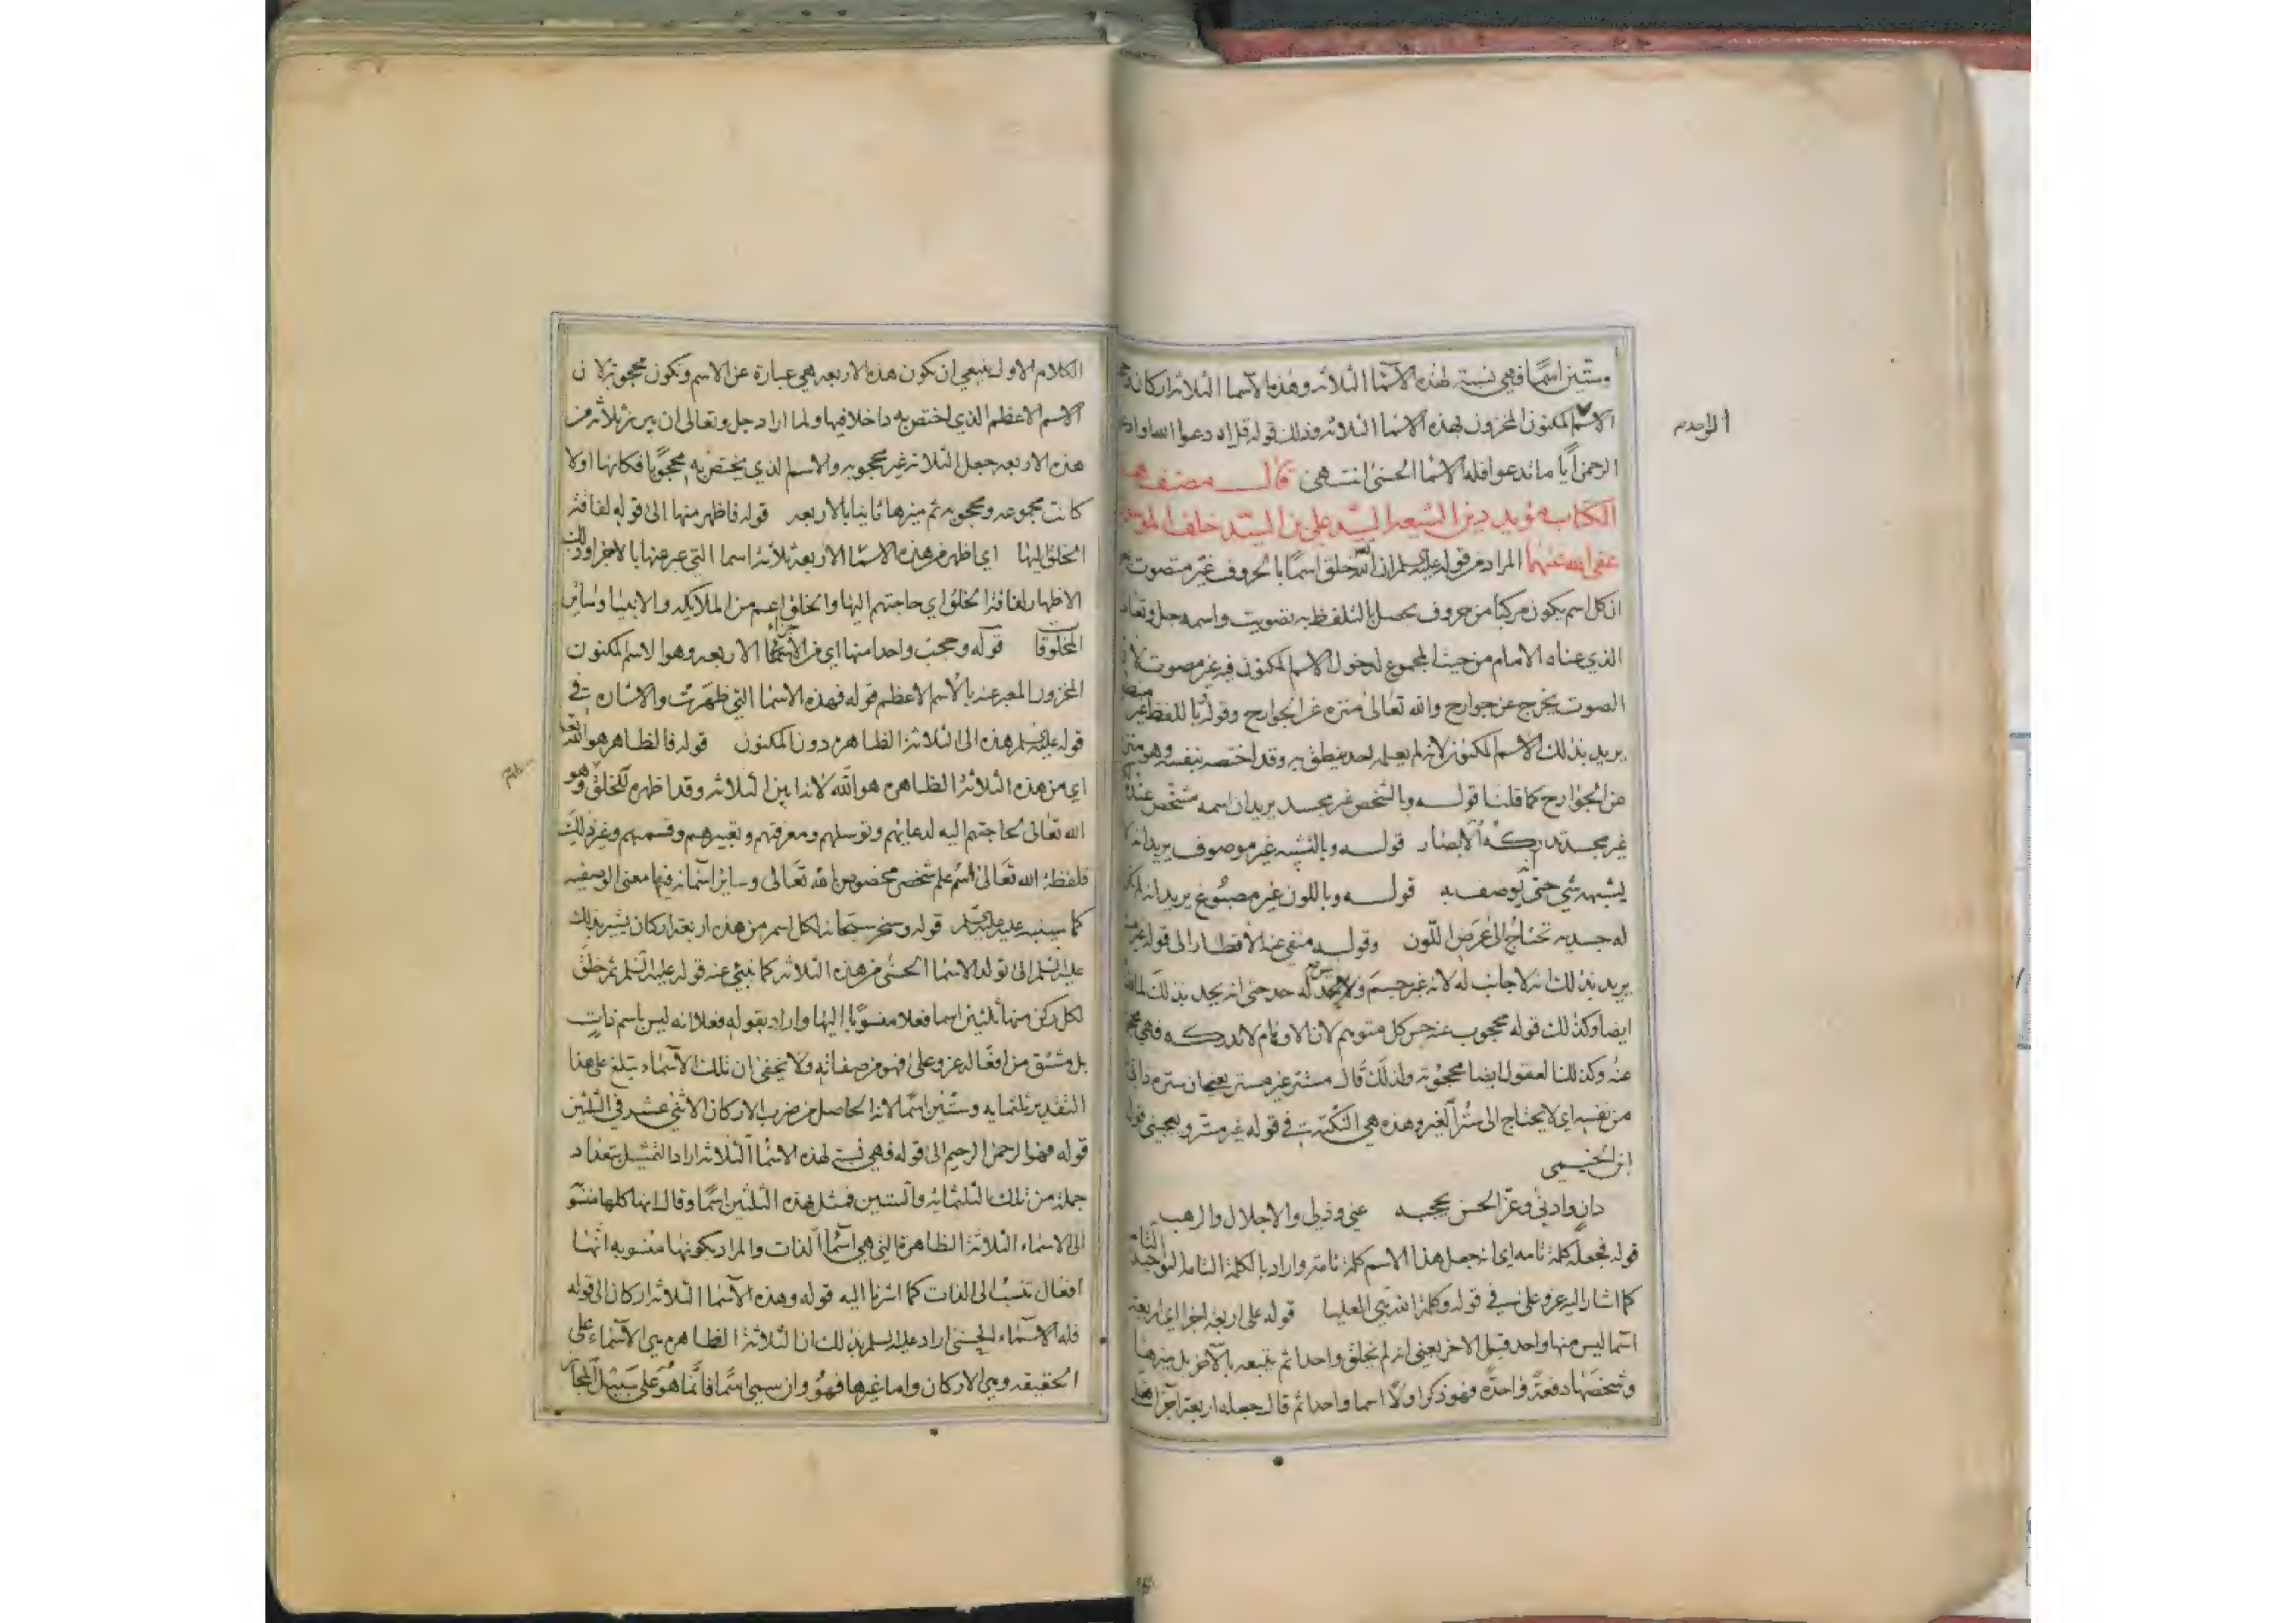 وستين اسمًا فهي نسبة لهذه الاسما الثلاثه وهذه الاسما الثلاثة اركان
الاسم المكنون المخزون لهذه الاسما الثلاثه وذلك قوله قل ادعوا الله او ادعوا
الواحد
الرحمن ايًا ما تدعوا فله الاسما الحسنى انتهى قال مصنف هذا
الكتاب مؤيد دين الشيعه السيد علي بن السيد خلف
عفى الله عنهما المراد من قوله عليه السلم ان الله خلق اسمًا بالحروف غير متصوت
ان كل اسم يكون مركبًا من حروف يحصل بالتلفظ به تصويت واسمه جل وتعالى
الذي عناه الامام من حيث المجموع لدخول الاسم المكنون فيه غير مصوت لان
الصوت يخرج عن جوارح والله تعالى منزه عن الجوارح وقوله باللفظ غير منطق
يريد بذلك الاسم المكنون لانه لم يعلمه احد ينطق به وقد اختصه بنفسه وهو منزه
عن الجوارح كما قلنا قوله وبالشخص غير مجسد يريد ان اسمه مشخص عنده
غير مجسد تدركه الابصار قوله وبالتشبيه غير موصوف يريد انه لا
يشبهه شي حتى يوصف به قوله وباللون غير مصبوغ يريد انه
له جسديه تحتاج الى عرض اللون وقوله منفي عنه الاقطار الى قوله
يريد بذلك انه لا جانب له لانه غير جسم ولا له حد حتى انه يحد بذلك
ايضا وكذلك قوله محجوب عنه حس كل متوهم لان الاوهام لا تدركه فهي
عنه وكذلك العقول ايضا محجوبه ولذلك قال مستتر غير مستر يعني ان ستره ذاتي
من نفسه اي لا يحتاج الى ستر الغير وهذه هي النكتة في قوله غير مستر ويعجبني قول
ابن الخيمي
دانٍ وادنى وعز الحسن يحجبه عني وذلي والاجلال والرهب
قوله فجعله كلمة تامه اي انه جعل هذا الاسم كلمة تامة واراد بالكلمة التامه التوحيد
كما اشار اليه عز وعلى في قوله وكلمة الله هي العليا قوله على اربعة اجزا اي اربعة
اسما ليس منها واحد قبل الاخر يعني انه لم يخلق واحدا ثم يتبعه بالآخر بل ميزها
وشخصها دفعة واحدة فهو ذكر اولًا اسما واحدا ثم قال جعله اربعة اجزا فعلى
الكلام الاول ينبغي ان تكون هذه الاربعه هي عبارة عن الاسم وتكون محجوبة لان
الاسم الاعظم الذي اختص به داخلا فيها ولما اراد جل وتعالى ان يبرز ثلاثه من
هذه الاربعه جعل الثلاثه غير محجوبه والاسم الذي يختص به محجوبًا فكانها اولا
كانت مجموعه ومحجوبه ثم ميزها ثانيا بالاربعه قوله فاظهر منها الى قوله لفاقة
الخلق اليها اي اظهر من هذه الاسما الاربعة ثلاثة اسما التي عبر عنها بالاجزا وذلك
الاظهار لفاقة الخلق اي حاجتهم اليها والخلق اعم من الملائكه والانبيا وسائر
المخلوقات قوله وحجب واحدا منها اي من الاجزاء الاربعه وهو الاسم المكنون
المخزون المعبر عنه بالاسم الاعظم قوله فهذه الاسما التي ظهرت والاشاره في
قوله عليه السلم هذه الى الثلاثة الظاهره دون المكنون قوله فالظاهر هو الله تعالى
اي من هذه الثلاثة الظاهره هو الله لانه ابين الثلاثه وقد اظهره للخلق وهو
الله تعالى لحاجتهم اليه لدعائهم وتوسلهم ومعرفتهم وتعبيرهم وقسمهم وغير ذلك
فلفظة الله تعالى اسم علم شخص مخصوص بالله تعالى وساير اسمائه فيها معنى الوصفيه
كما سينبه عليه عليه السلم قوله وسخر سبحانه لكل اسم من هذه اربعة اركان يشير بذلك
عليه السلم الى تولد الاسما الحسنى من هذه الثلاثه كما ينبئ عنه قوله عليه السلم ثم خلق
لكل ركن منها ثلثين اسما فعلا منسوبًا اليها واراد بقوله فعلا انه ليس باسم ذات
بل مشتق من افعاله عز وعلى فهو من صفاته ولا يخفى ان تلك الاسماء تبلغ على هذا
التقدير ثلثمايه وستين اسمًا لانه الحاصل من ضرب الاركان الاثني عشر في الثلثين
قوله فهو الرحمن الرحيم الى قوله فهي نسبة لهذه الاسما الثلاثة اراد التمثيل بتعداد
جملة من تلك الثلثمائه والستين فمثل هذه الثلثين اسمًا وقال انها كلها منسوبه
الى الاسماء الثلاثة الظاهرة التي هي اسما الذات والمراد بكونها منسوبه انها
افعال تنسب الى الذات كما اشرنا اليه قوله وهذه الاسما الثلاثة اركان الى قوله
فله الاسماء الحسنى اراد عليه السلم بذلك ان الثلاثة الظاهره هي الاسماء على
الحقيقه وهي الاركان واما غيرها فهو وان سمي اسمًا فانما هو على سبيل المجاز